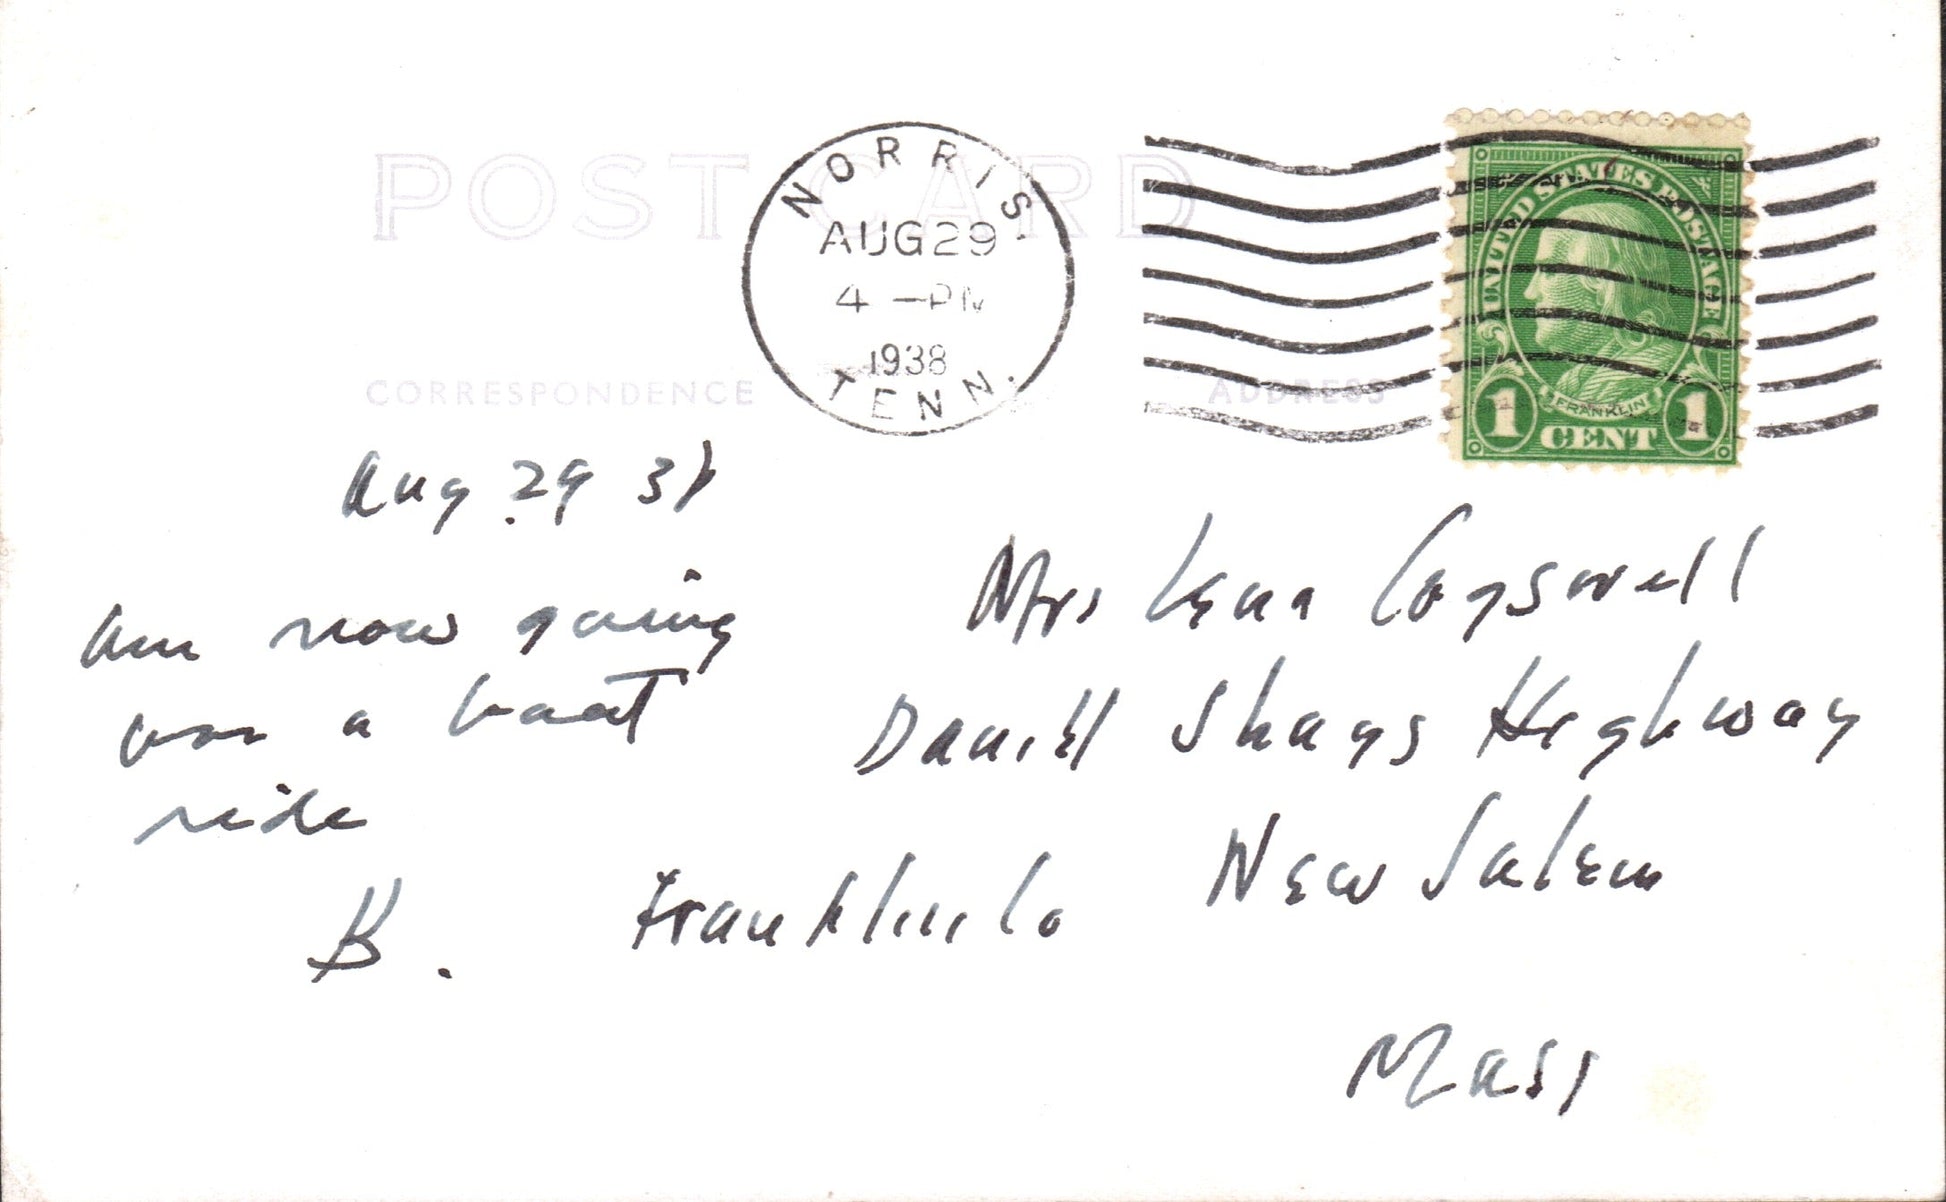 POST CARD
NORRIS
AUG 29
4 -PM
1938
TENN.
UNITED STATES POSTAGE
FRANKLIN
1 CENT 1
CORRESPONDENCE
ADDRESS
Aug 29 38
Am now going
on a boat
ride
B.
Mrs Lena Cogswell
Daniel Shays Highway
New Salem
Franklin Co
Mass